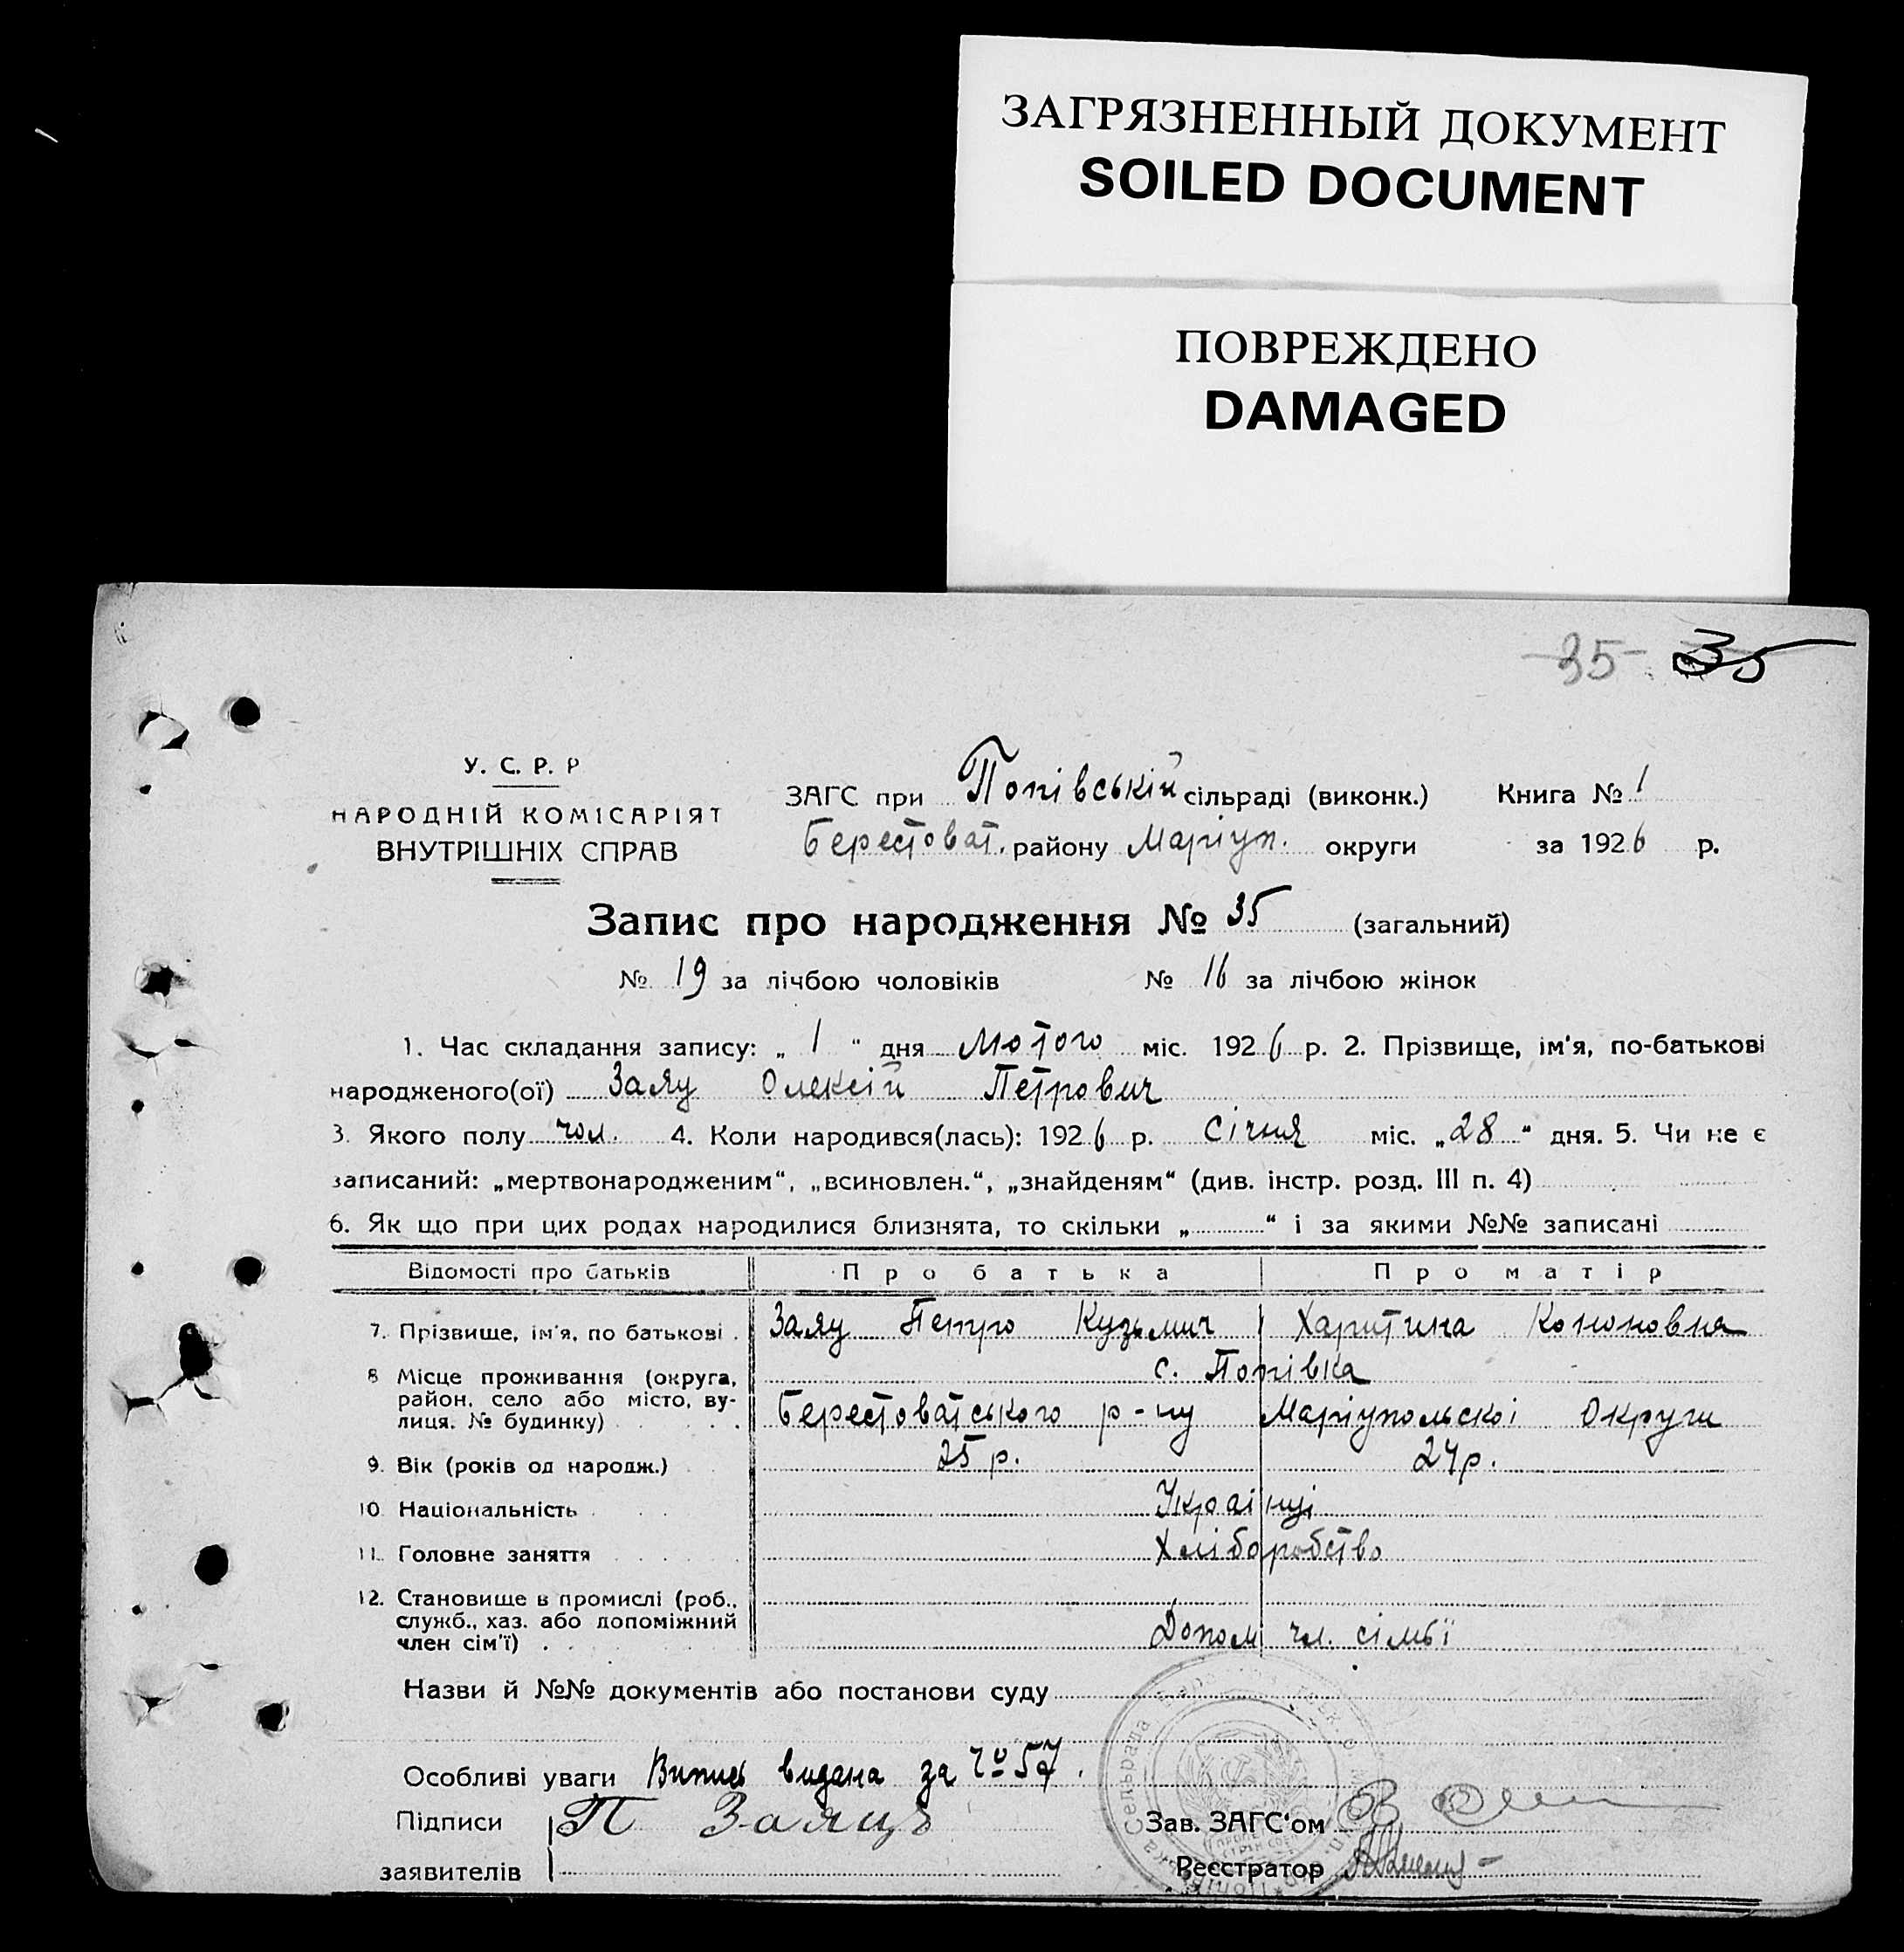 ЗАГРЯЗНЕННЫЙ ДОКУМЕНТ
SOILED DOCUMENT
ПОВРЕЖДЕНО
DAMAGED
35 35
У. С. Р. Р
НАРОДНІЙ КОМІСАРІЯТ
ВНУТРІШНІХ СПРАВ
ЗАГС при Попівській сільраді (виконк.) Книга № 1
Берестоват. району Маріуп. округи за 1926 р.
Запис про народження № 35 (загальний)
№ 19 за лічбою чоловіків № 16 за лічбою жінок
1. Час складання запису: „ 1 “ дня Лютого міс. 1926 р. 2. Прізвище, ім'я, по-батькові
народженого(ої) Заяц Олексій Петрович
3. Якого полу чол. 4. Коли народився(лась): 1926 р. Січня міс. „28“ дня. 5. Чи не є
записаний: „мертвонародженим“, „всиновлен.“, „знайденям“ (див. інстр. розд. III п. 4)
6. Як що при цих родах народилися близнята, то скільки „ “ і за якими №№ записані
Відомості про батьків Про батька Про матір
7. Прізвище, ім'я, по батькові Заяц Петро Кузьмич Харитина Кононовна
8 Місце проживання (округа, с. Попівка
район, село або місто, ву-
лиця, № будинку) Берестоватського р-ну Маріупольскої Округи
9. Вік (років од народж.) 25 р. 24 р.
10 Національність Українці
11. Головне заняття Хліборобство
12. Становище в промислі (роб.,
служб., хаз. або допоміжний
член сім'ї) Допом чл. сімьї
Назви й №№ документів або постанови суду
Особливі уваги Випись видана за № 57.
Підписи П Заяць Зав. ЗАГС'ом
заявителів Реєстратор